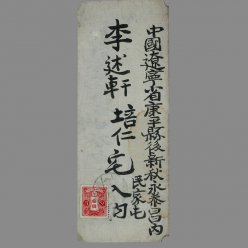 中國遼寧省康平縣後新秋永泰昌內
民家屯
李述軒 培仁宅入內